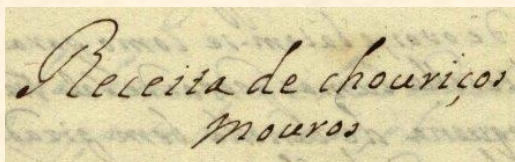 Receita de chouriços
mouros